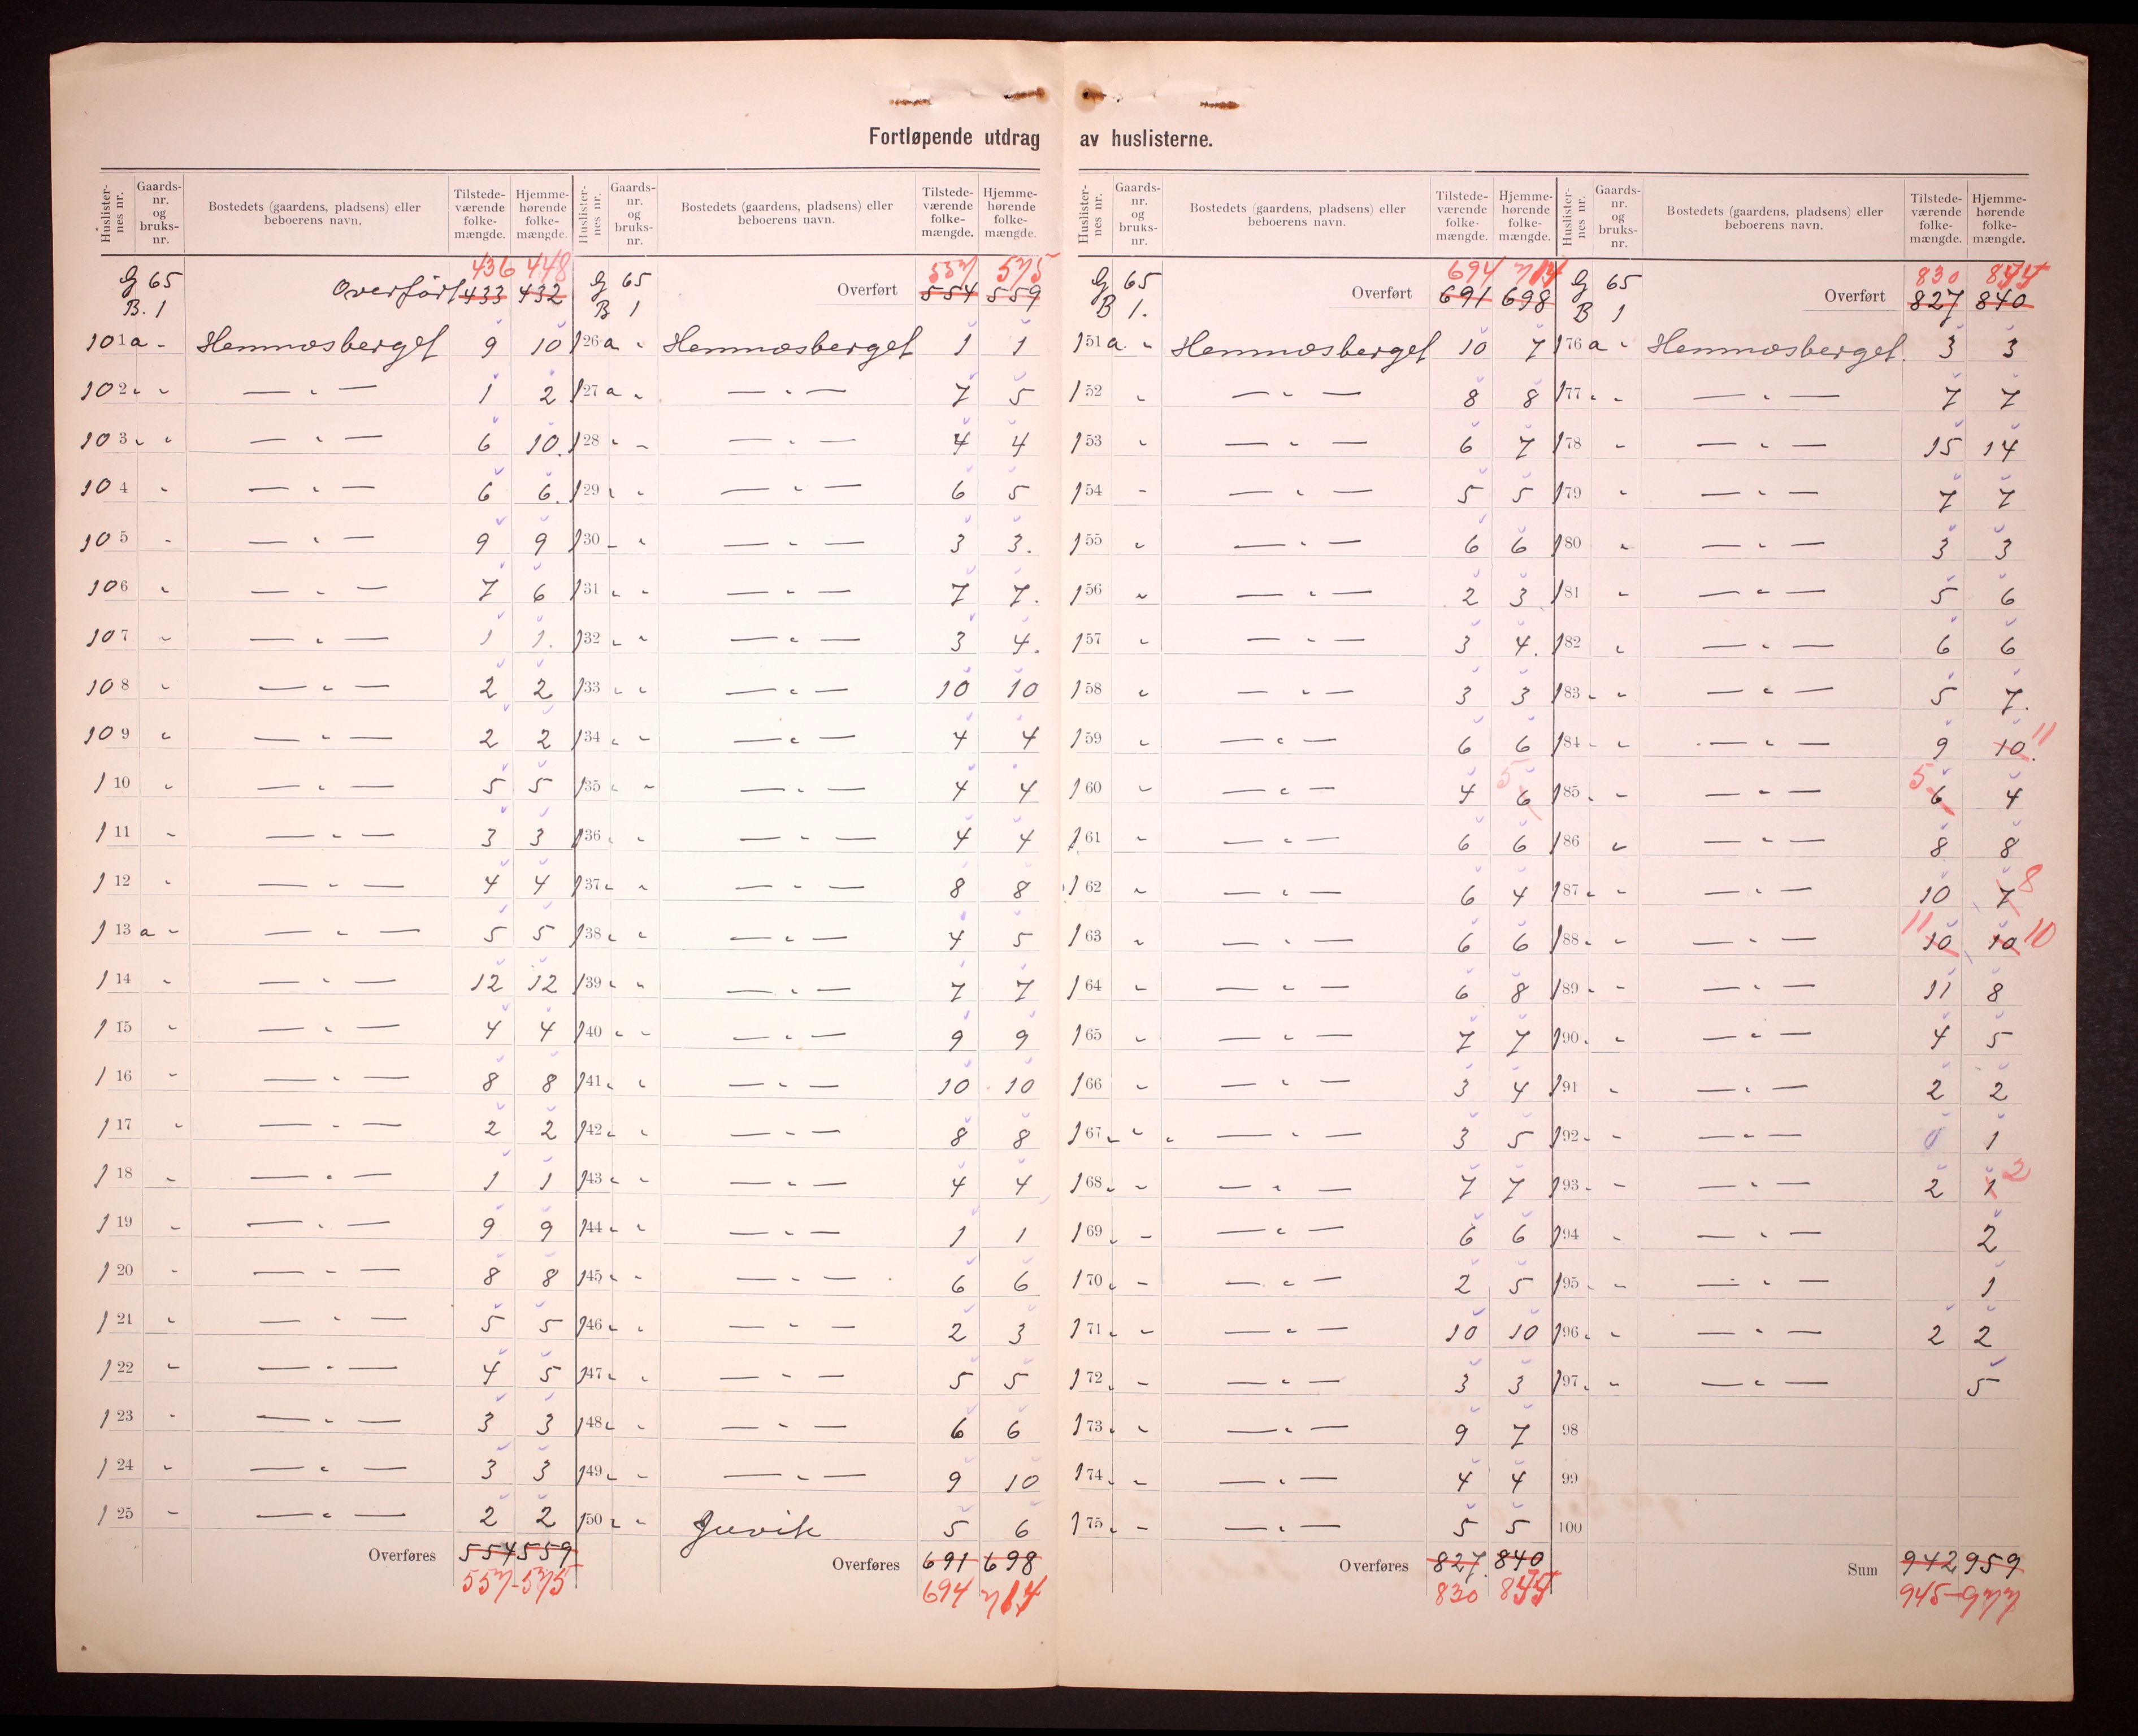 Fortløpende utdrag av huslisterne.
Huslister-nes nr. Gaards-nr. og bruks-nr. Bostedets (gaardens, pladsens) eller beboerens navn. Tilstede-værende folke-mængde. Hjemme-hørende folke-mængde.
436 448
G 65 Overført 433 432
B. 1
101 a - Hemnæsberget 9 10
102 " " — " — 1 2
103 " " — " — 6 10.
104 " — " — 6 6.
105 " — " — 9 9
106 " — " — 7 6
107 " — " — 1 1.
108 " — " — 2 2
109 " — " — 2 2
110 " — " — 5 5
111 " — " — 3 3
112 " — " — 4 4
113 a " — " — 5 5
114 " — " — 12 12
115 " — " — 4 4
116 " — " — 8 8
117 " — " — 2 2
118 " — " — 1 1
119 " — " — 9 9
120 " — " — 8 8
121 " — " — 5 5
122 " — " — 4 5
123 " — " — 3 3
124 " — " — 3 3
125 " — " — 2 2
Overføres 554 559
557 - 575
Huslister-nes nr. Gaards-nr. og bruks-nr. Bostedets (gaardens, pladsens) eller beboerens navn. Tilstede-værende folke-mængde. Hjemme-hørende folke-mængde.
557 575
G 65 Overført 554 559
B 1
126 a " Hemnæsberget 1 1
127 a " — " — 7 5
128 " " — " — 4 4
129 " " — " — 6 5
130 " " — " — 3 3.
131 " " — " — 7 7.
132 " " — " — 3 4.
133 " " — " — 10 10
134 " " — " — 4 4
135 " " — " — 4 4
136 " " — " — 4 4
137 " " — " — 8 8
138 " " — " — 4 5
139 " " — " — 7 7
140 " " — " — 9 9
141 " " — " — 10 10
142 " " — " — 8 8
143 " " — " — 4 4
144 " " — " — 1 1
145 " " — " — 6 6
146 " " — " — 2 3
147 " " — " — 5 5
148 " " — " — 6 6
149 " " — " — 9 10
150 " " Juvik 5 6
Overføres 691 698
694 714
Huslister-nes nr. Gaards-nr. og bruks-nr. Bostedets (gaardens, pladsens) eller beboerens navn. Tilstede-værende folke-mængde. Hjemme-hørende folke-mængde.
694 714
G 65 Overført 691 698
B 1.
151 a " Hemnæsberget 10 7
152 " — " — 8 8
153 " — " — 6 7
154 " — " — 5 5
155 " — " — 6 6
156 " — " — 2 3
157 " — " — 3 4.
158 " — " — 3 3
159 " — " — 6 6
160 " — " — 4 6 5
161 " — " — 6 6
162 " — " — 6 4
163 " — " — 6 6
164 " — " — 6 8
165 " — " — 7 7
166 " — " — 3 4
167 " " " — " — 3 5
168 " " — " — 7 7
169 " " — " — 6 6
170 " " — " — 2 5
171 " " — " — 10 10
172 " " — " — 3 3
173 " " — " — 9 7
174 " " — " — 4 4
175 " " — " — 5 5
Overføres 827. 840
830
Huslister-nes nr. Gaards-nr. og bruks-nr. Bostedets (gaardens, pladsens) eller beboerens navn. Tilstede-værende folke-mængde. Hjemme-hørende folke-mængde.
830
G 65 Overført 827 840
B 1
176 a " Hemnæsberget. 3 3
177 " " — " — 7 7
178 " — " — 15 14
179 " — " — 7 7
180 " — " — 3 3
181 " — " — 5 6
182 " — " — 6 6
183 " " — " — 5 7.
184 " " — " — 9 10. 11
185 " " — " — 5 6 4
186 " — " — 8 8
187 " " — " — 10 7 8
188 " " — " — 11 10 10 10
189 " " — " — 11 8
190 " " — " — 4 5
191 " — " — 2 2
192 " " — " — 1
193 " " — " — 2 1 2
194 " — " — 2
195 " " — " — 1
196 " " — " — 2 2
197 " " — " — 5
98
99
100
Sum 942 959
945 - 977